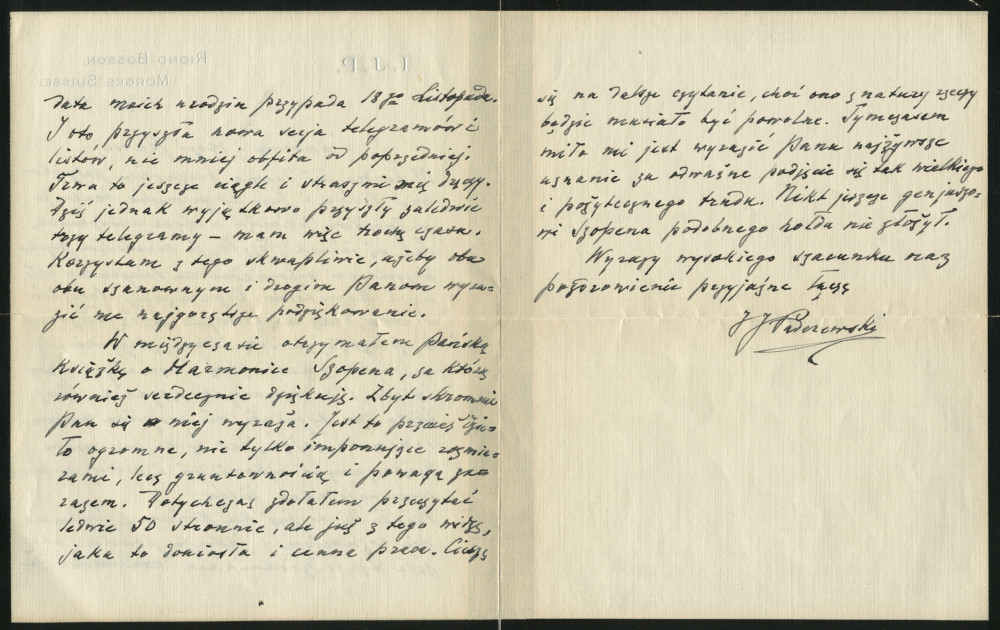 I.J.P.
RIOND-BOSSON.
MORGES (SUISSE.
data moich urodzin przypada 18go Listopada.
I oto przyszła nowa serja telegramów i
listów, nie mniej obfita od poprzedniej.
Trwa to jeszcze ciągle i straszmi mię dręczy.
Dziś jednak wyjątkowo przyszły zaledwie
trzy telegramy – mam więc trochę czasu.
Korzystam z tego skwapliwie, ażeby obu
obu szanownym i drogim Panom wyra-
zić me najgorętsze podziękowanie.
W międzyczasie otrzymałem Pańską
Książkę o Harmonice Szopena, za którą
również serdecznie dziękuję. Zbyt skromnie
Pan się o niej wyraża. Jest to przecież dzie-
ło ogromne, nie tylko imponujące rozmia-
rami, lecz gruntownością i powagą za-
razem. Dotychczas zdołałem przeczytać
ledwie 50 stronnic, ale już z tego widzę,
jaka to doniosła i cenna praca. Cieszę
się na dalsze czytanie, choć ono z natury rzeczy
będzie musiało być powolne. Tymczasem
miło mi jest wyrazić Panu najżywsze
uznanie za odważne podjęcie się tak wielkiego
i pożytecznego trudu. Nikt jeszcze genjuszo-
wi Szopena podobnego hołdu nie złożył.
Wyrazy wysokiego szacunku oraz
pozdrowienie przyjaźne łączę
I J Paderewski